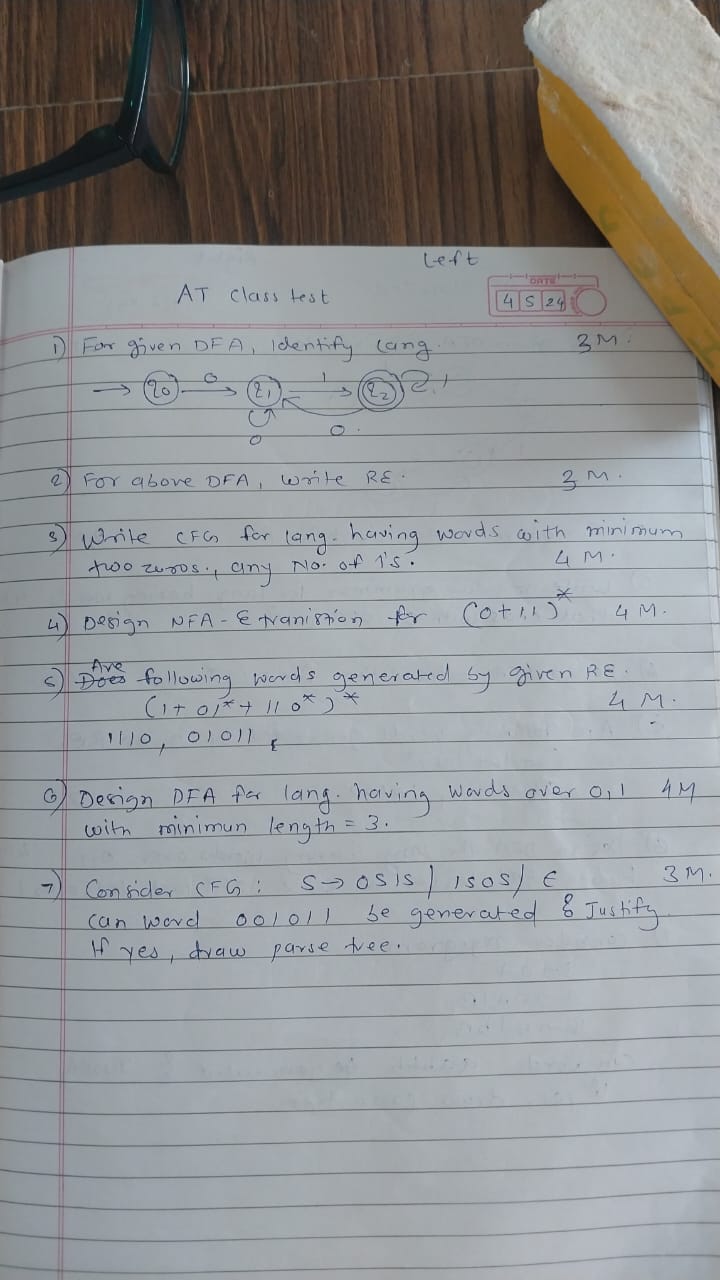 Left
AT Class test
DATE
4 5 24
1) For given DFA, Identify lang. 3M.
q0 0 q1 1 q2 1
0 0
2) For above DFA, write RE. 3 M.
3) Write CFG for lang. having words with minimum
two zeros., any No. of 1's. 4 M.
4) Design NFA - ε tranistion for (0+11)* 4 M.
Are
5) Does following words generated by given RE.
(1+01*+110*)* 4 M.
1110, 01011
6) Design DFA for lang. having words over 0,1 4M
with minimun length = 3.
7) Consider CFG: S→0S1S | 1S0S | ε 3 M.
can word 001011 be generated & Justify
If yes, draw parse tree.